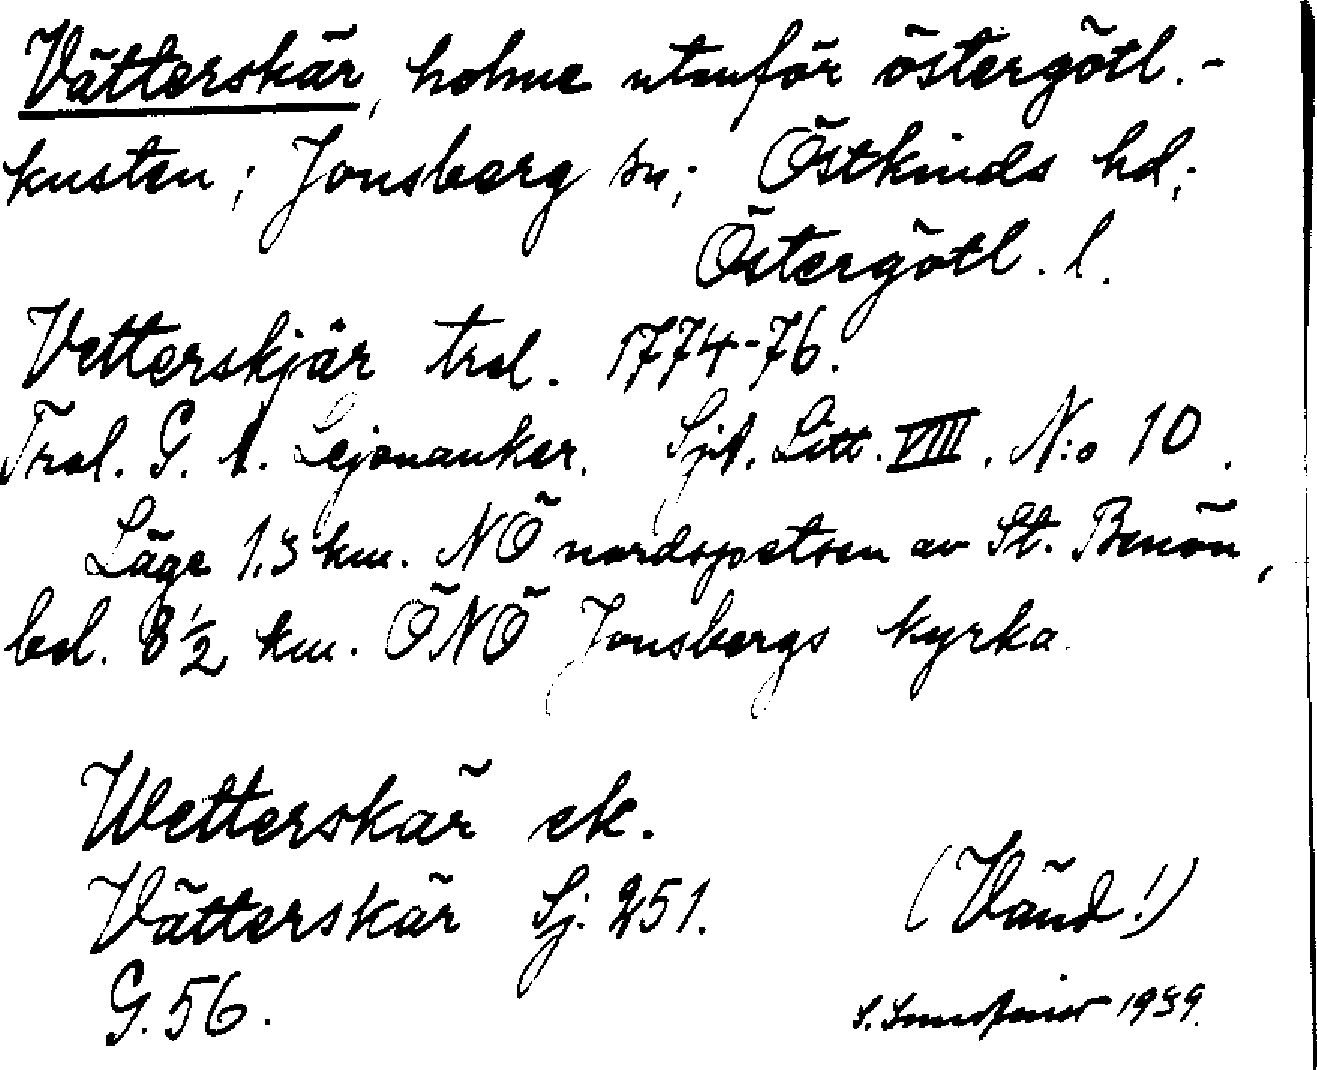 Vätterskär, holme utanför östergötl.-
kusten; Jonsberg sn; Östkinds hd;
Östergötl. l.
Vetterskjär trol. 1774-76.
Trol. G. A. Lejonanker. Sjk. Litt. VIII. N:o 10.
Läge 1.3 km. NÖ nordspetsen av St. Benön,
bel. 8½ km. ÖNÖ Jonsbergs kyrka.
Wetterskär ek.
Vätterskär Sj. 251.
(Vänd!)
G. 56.
S. 1939.